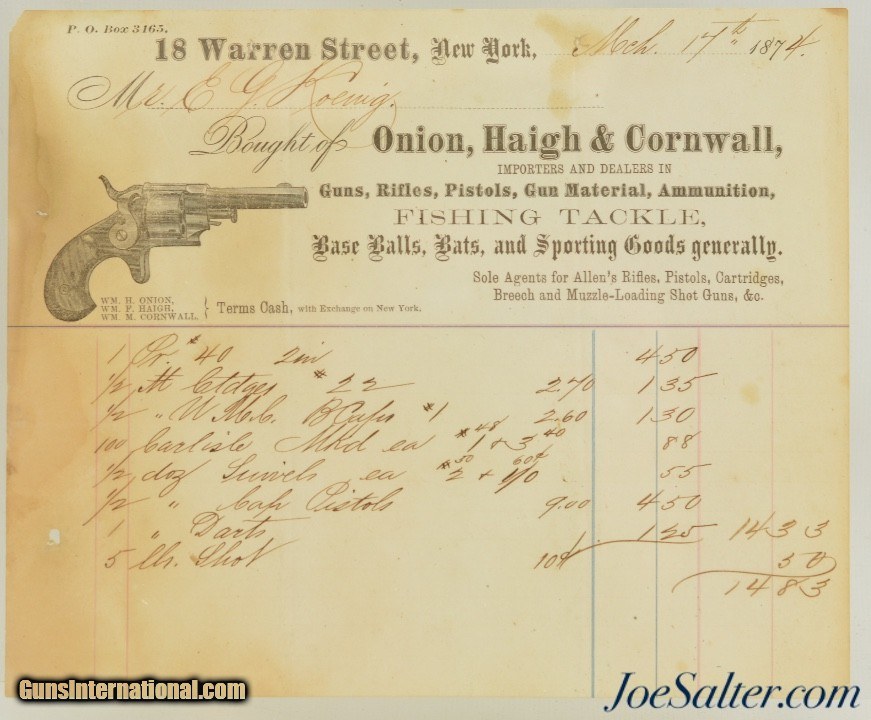 P. O. Box 3165.
18 Warren Street, New York, Mch. 17th 1874.
Mr. E. G. Koenig.
Bought of Onion, Haigh & Cornwall,
IMPORTERS AND DEALERS IN
Guns, Rifles, Pistols, Gun Material, Ammunition,
FISHING TACKLE,
Base Balls, Bats, and Sporting Goods generally.
Sole Agents for Allen's Rifles, Pistols, Cartridges,
Breech and Muzzle-Loading Shot Guns, &c.
WM. H. ONION,
WM. F. HAIGH,
WM. M. CORNWALL.
Terms Cash, with Exchange on New York.
1 Pr. #40 2in 4 50
1/2 M Ctdges #22 2.70 1 35
1/2 " U.M.C. B Caps #1 2.60 1 30
100 Carlisle Mkd ea #1 48 & 3 40 88
1/2 doz Swivels ea #2 50 & 1/0 60¢ 55
1/2 " Cap Pistols 9.00 4 50
1 " Darts 1 25 14 33
5 lbs. Shot 10¢ 50
14 83
GunsInternational.com
JoeSalter.com